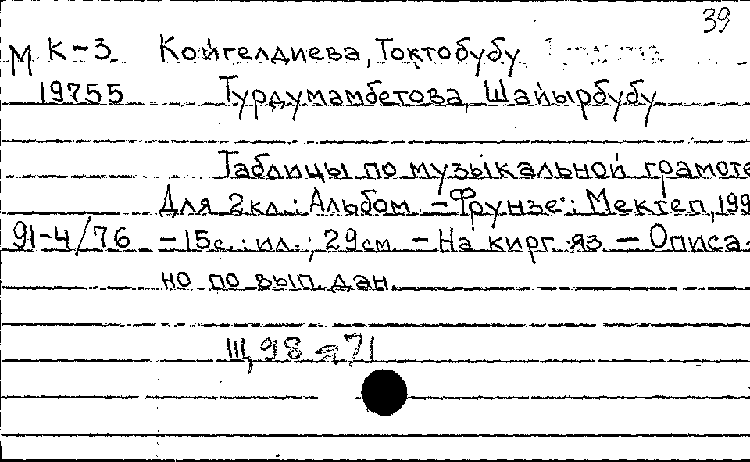 39
М К-3 Койгелдиева, Токтобубу
19755 Турдумамбетова, Шайырбубу
Таблицы по музыкальной грамоте
Для 2 кл.: Альбом. - Фрунзе: Мектеп, 199
91-4/76 - 15с.: ил.; 29см. - На кирг. яз. - Описа-
но по вып. дан.
Ш, 98 я71